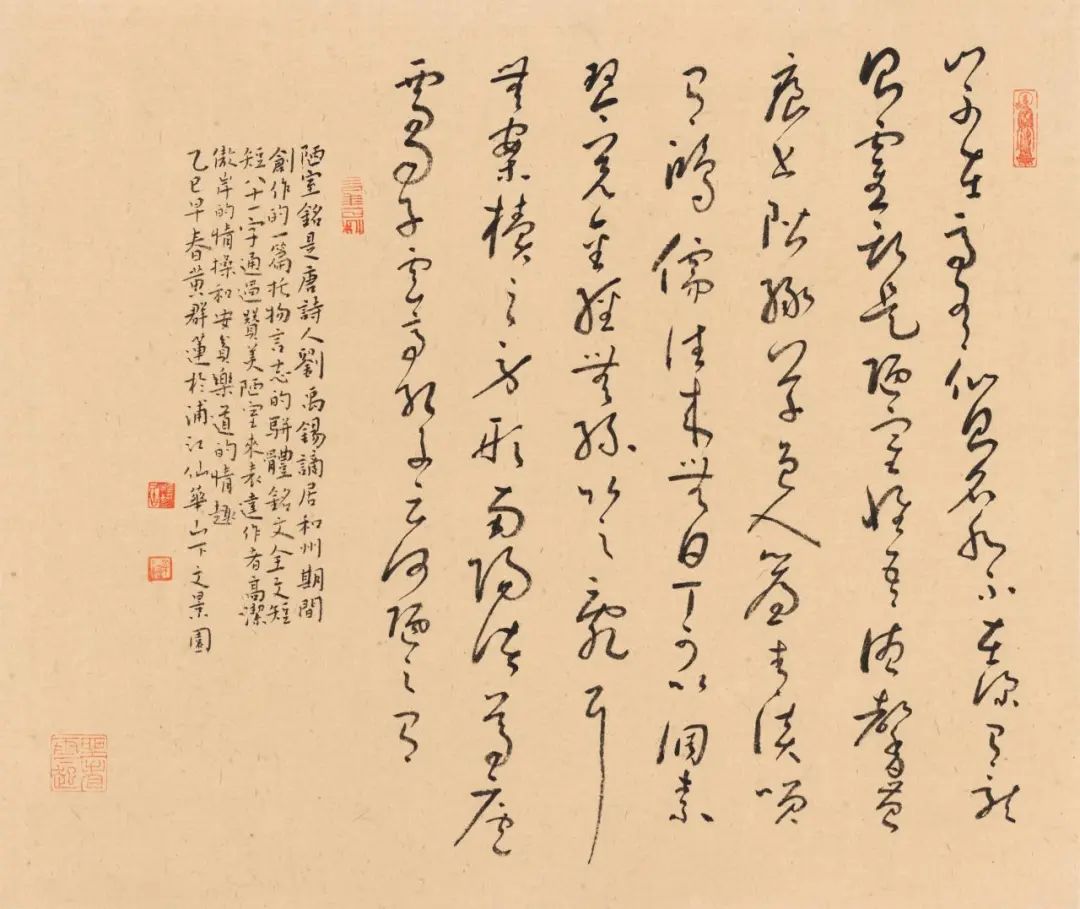 山不在高有仙則名水不在深有龍
則靈斯是陋室惟吾德馨苔
痕上階綠草色入簾青談笑
有鴻儒往來無白丁可以調素
琴閱金經無絲竹之亂耳
無案牘之勞形南陽諸葛廬
西蜀子雲亭孔子云何陋之有
陋室銘是唐詩人劉禹錫謫居和州期間
創作的一篇托物言志的駢體銘文全文短
短八十一字通過贊美陋室來表達作者高潔
傲岸的情操和安貧樂道的情趣
乙巳早春黄群蓮於浦江仙華山下文景園